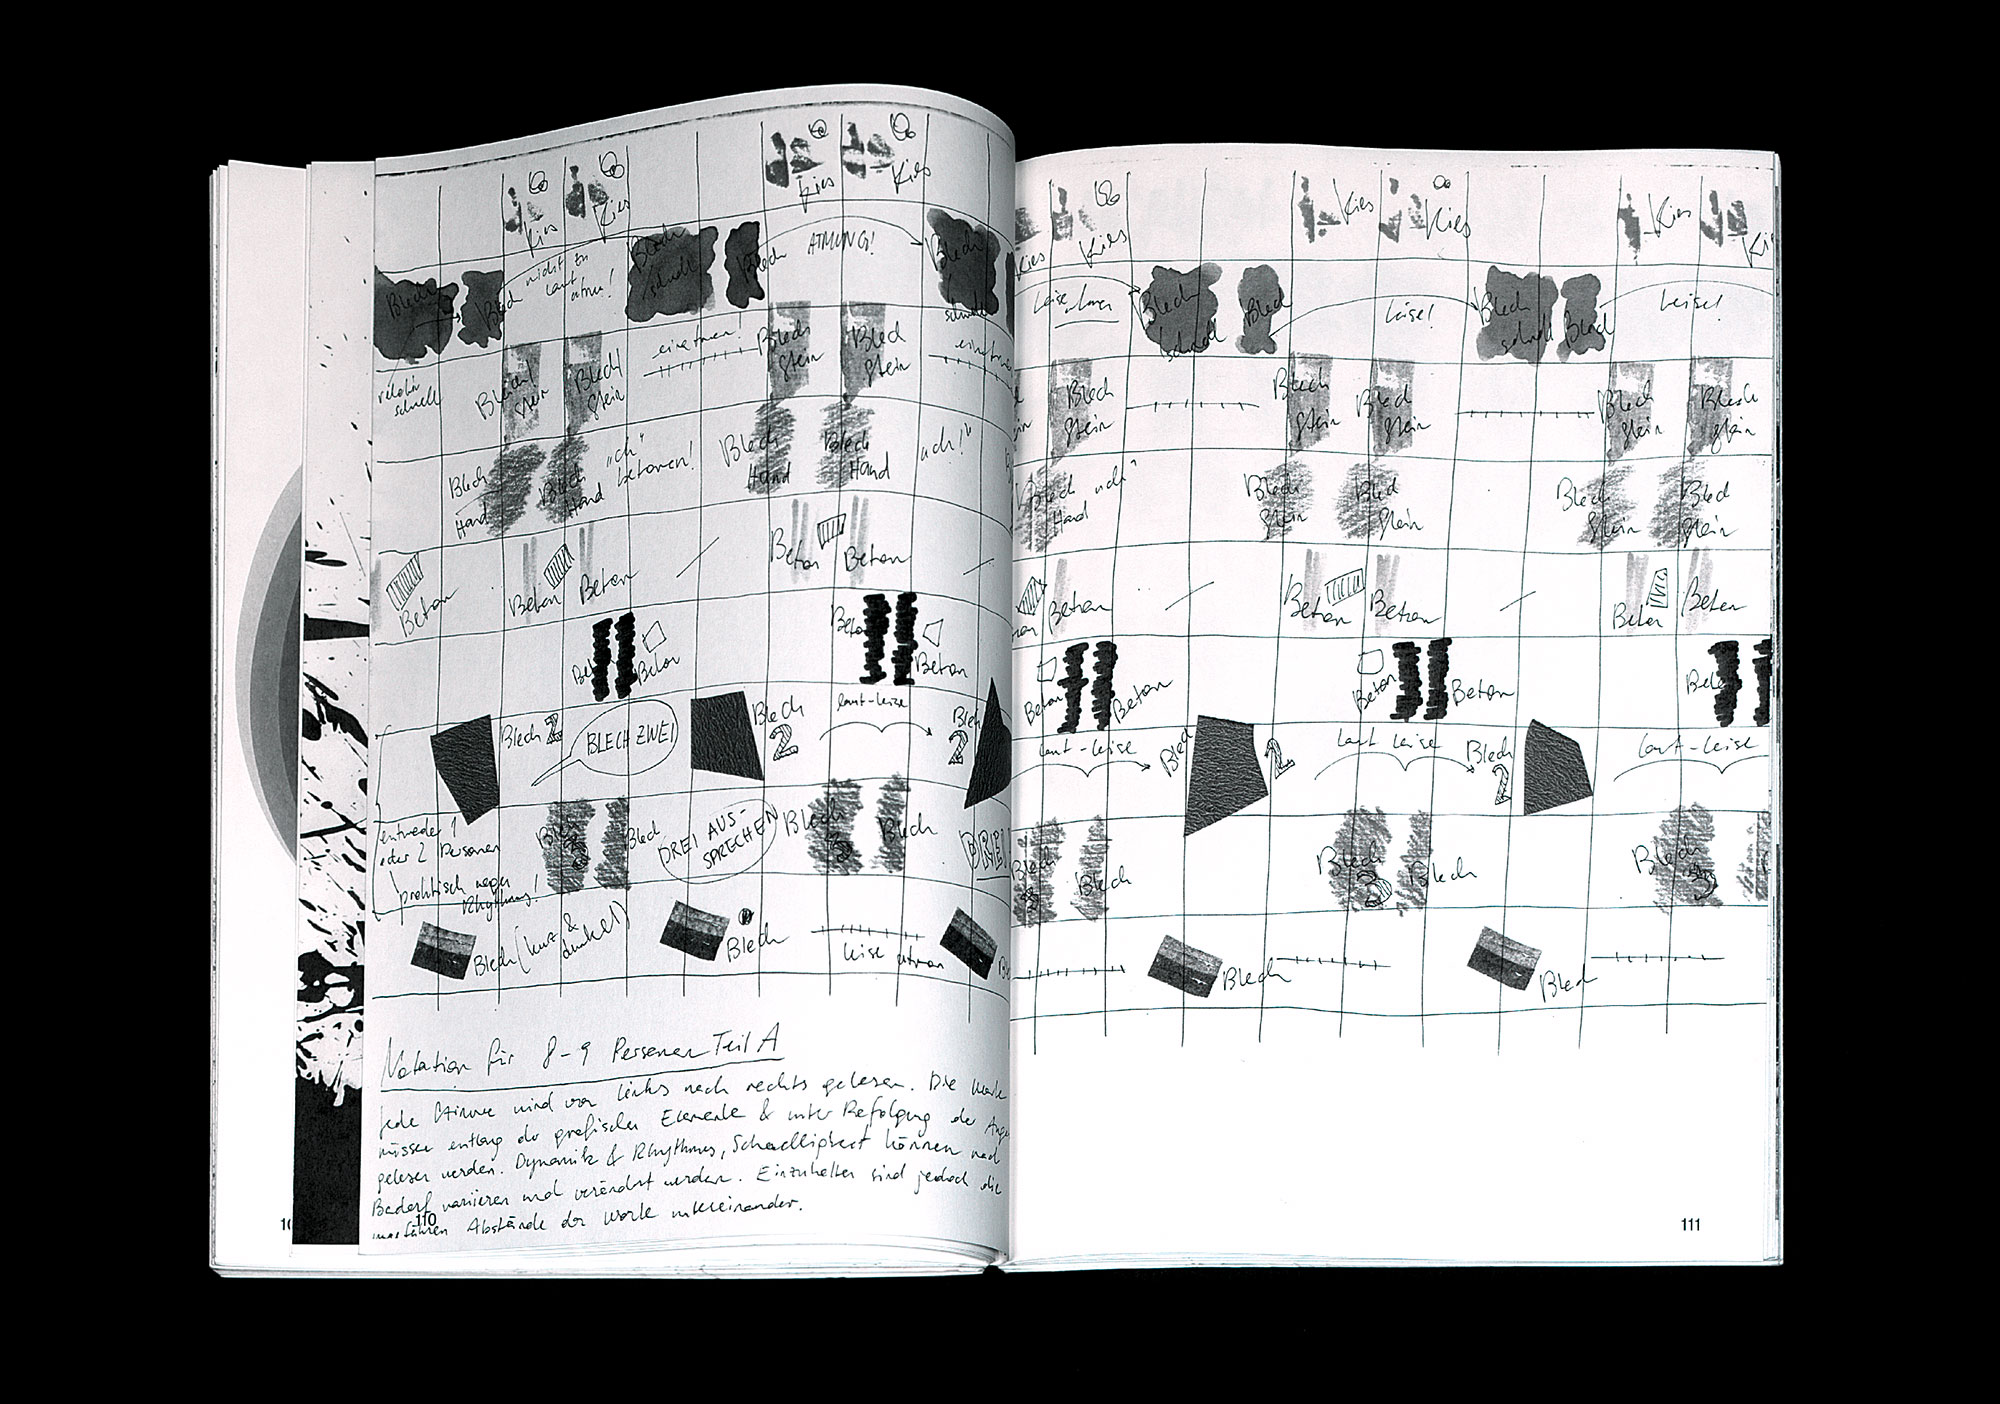 Kies Kies Kies Kies
Blech Blech nicht zu laut atmen! Blech schnell Blech ATMUNG! Blech schnell
relativ schnell Blech/ Stein Blech/ Stein einatmen! Blech Stein Blech Stein
Blech Hand Blech Hand "ch" betonen! Blech Hand Blech Hand "ch!"
Beton Beton Beton Beton Beton
Beton Beton Beton
Blech 2 BLECH ZWEI Blech 2 laut-leise Blech 2
entweder 1
oder 2 Personen
praktisch wegen
Rhythmus!
Blech 3 Blech DREI AUS-
SPRECHEN Blech 3 Blech DREI
Blech (kurz &
dunkel) Blech leise atmen
Notation für 8-9 Personen Teil A
Jede Stimme wird von links nach rechts gelesen. Die Worte
müssen entlang der grafischen Elemente & unter Befolgung der
gelesen werden. Dynamik & Rhythmus, Schnelligkeit können nach
Bedarf variieren und verändert werden. Einzuhalten sind jedoch die
ungefähren Abstände der Worte untereinander.
110
Kies Kies Kies Kies Kies
leise Blech schnell Blech leise! Blech schnell Blech leise!
Blech Stein Blech Stein Blech Stein Blech Stein Blech Stein
Blech Hand "ch" Blech Stein Blech Stein Blech Stein Blech Stein
Beton Beton Beton Beton Beton
Beton Beton Beton Beton
laut-leise Blech 2 laut leise Blech 2 laut-leise
Blech 3 Blech Blech 3 Blech Blech 3
Blech Blech
111